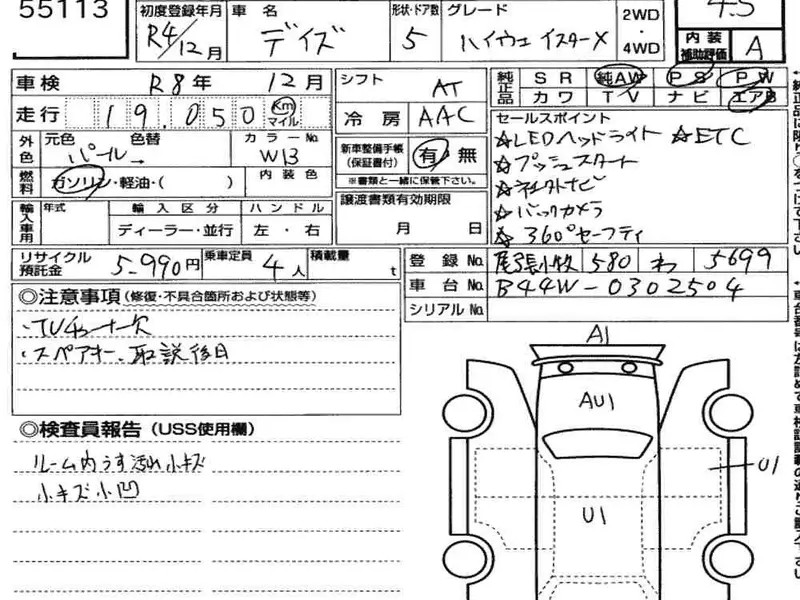 55113
初度登録年月 車名 形状・ドア数 グレード 2WD・4WD 4.5
R4/12月 デイズ 5 ハイウェイスターX 内装補助評価 A
車検 R8年 12月 シフト AT 純正品 SR 純AW PS PW
カワ TV ナビ エアB
走行 19,050 Km マイル 冷房 AAC
外色 元色 色替 カラーNo. セールスポイント
パール W13 新車整備手帳(保証書付) 有・無 ☆LEDヘッドライト ☆ETC
※書類と一緒に保管下さい。 ☆プッシュスタート
燃料 ガソリン・軽油・( ) 内装色 ☆ネクストナビ
輸入車用 年式 輸入区分 ハンドル 譲渡書類有効期限 ☆バックカメラ
ディーラー・並行 左・右 月 日 ☆360°セーフティ
リサイクル預託金 5,990円 乗車定員 4人 積載量 t 登録No. 尾張小牧 580 わ 5699
車台No. B44W-0302504
シリアルNo.
◎注意事項(修復・不具合箇所および状態等)
・TVチューナー欠
・スペアキー、取説後日
◎検査員報告(USS使用欄)
ルーム内うす汚れ小キズ
小キズ小凹
A1
AU1
U1
U1